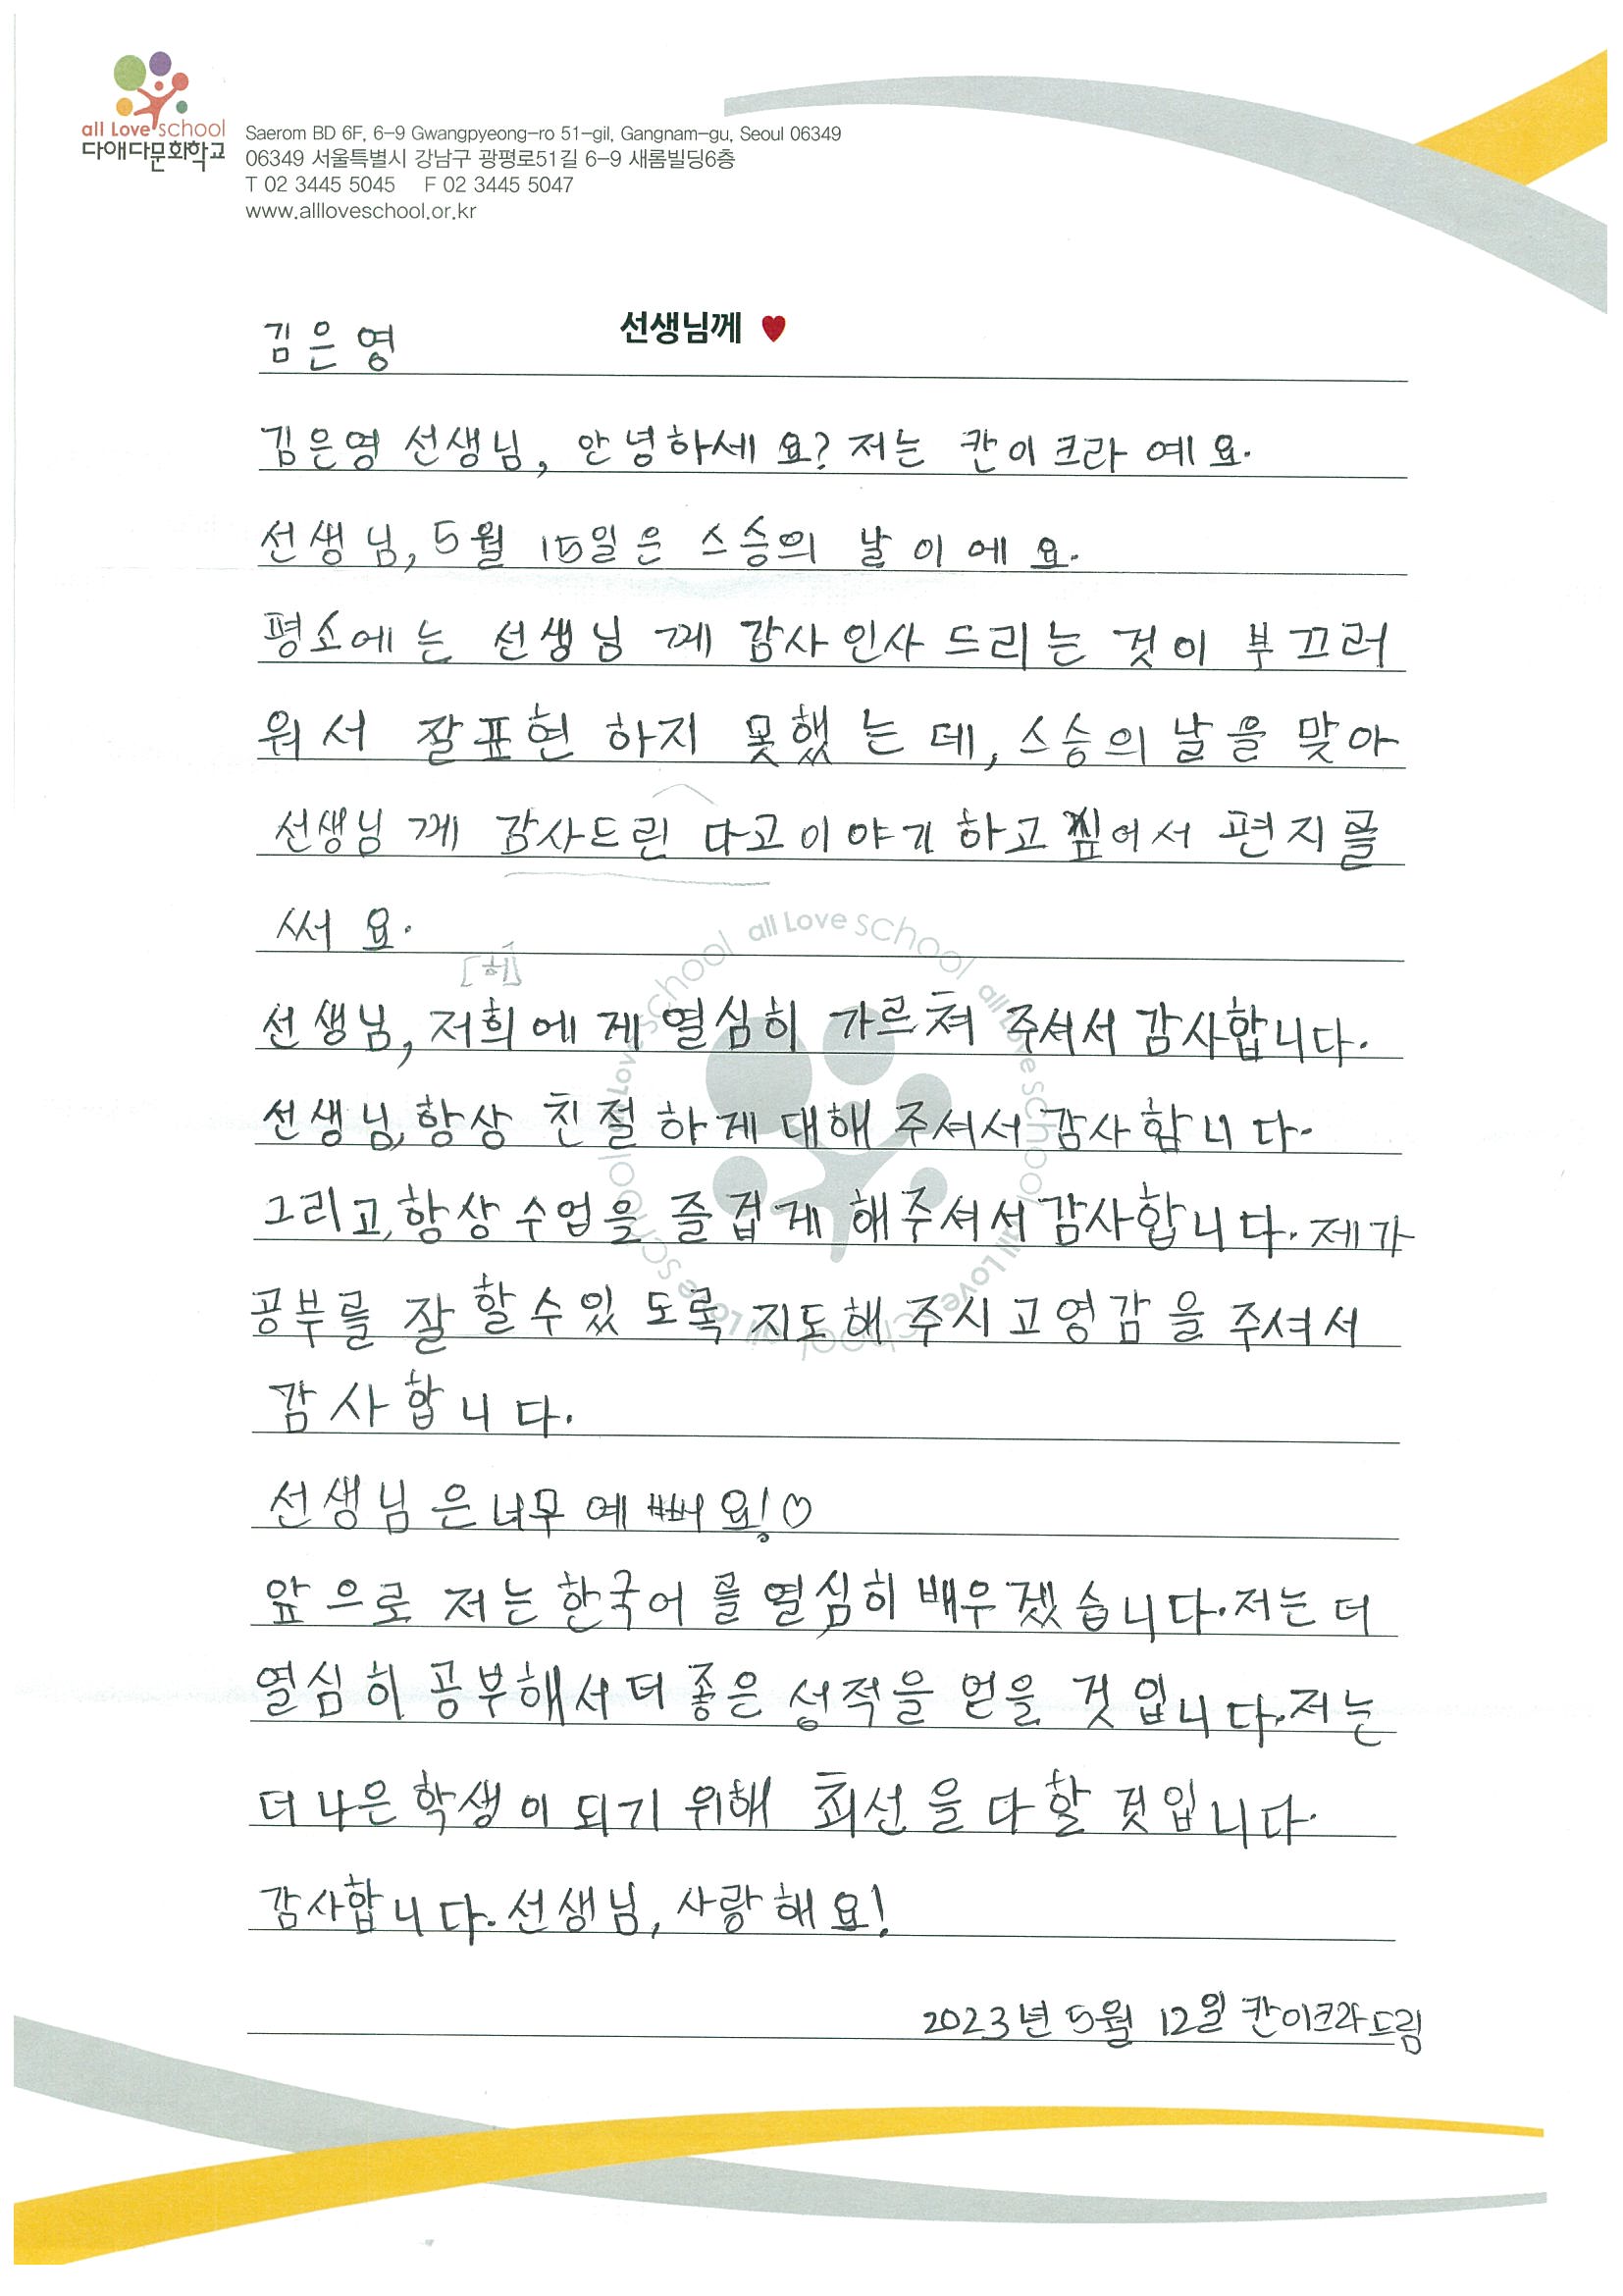 all Love school
다애다문화학교
Saerom BD 6F, 6-9 Gwangpyeong-ro 51-gil, Gangnam-gu, Seoul 06349
06349 서울특별시 강남구 광평로51길 6-9 새롬빌딩6층
T 02 3445 5045 F 02 3445 5047
www.allloveschool.or.kr
김은영 선생님께 ♥
김은영 선생님, 안녕하세요? 저는 칸이크라예요.
선생님, 5월 15일은 스승의 날이에요.
평소에는 선생님께 감사인사드리는 것이 부끄러
워서 잘표현하지 못했는데, 스승의 날을 맞아
선생님께 감사드린다고이야기하고 싶어서 편지를
써요.
[히]
선생님, 저희에게 열심히 가르쳐 주셔서 감사합니다.
선생님,항상 친절하게 대해 주셔서 감사합니다.
그리고,항상 수업을 즐겁게 해주셔서 감사합니다. 제가
공부를 잘 할수있도록 지도해 주시고영감을 주셔서
감사합니다.
선생님은 너무 예뻐요!♡
앞으로 저는 한국어를 열심히 배우겠습니다. 저는 더
열심히 공부해서 더 좋은 성적을 얻을 것입니다. 저는
더 나은 학생이 되기 위해 최선을 다할 것입니다.
감사합니다. 선생님, 사랑해요!
2023년 5월 12일 칸이크라드림
all Love school all Love school all Love school all Love school all Love school